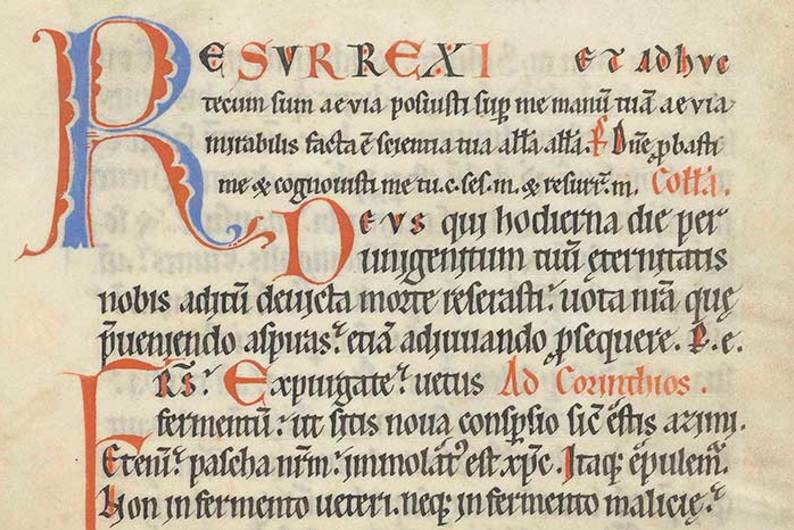 RESURREXI et adhuc
tecum sum aevia posuisti sup me manū tuā aevia
mirabilis facta ē scientia tua allā allā. P Dn̄e pbasti
me & cognovisti me tu.c.ses.m. & resurr̄.m. Collā.
Deus qui hodierna die per
unigenitum tuū ęternitatis
nobis aditū devicta morte reserasti. uota n̄ra quę
p̄ueniendo aspiras. etiā adiuuando p̱sequere. P.e.
FRS̄. Expurgate uetus Ad Corinthios.
fermentū: ut sitis noua consp̱sio sic̄ estis azimi.
Eteni pascha nr̄m: immolat᷒ est xp̄c. Itaq; epulem̄.
Non in fermento ueteri. neq; in fermento malicię.